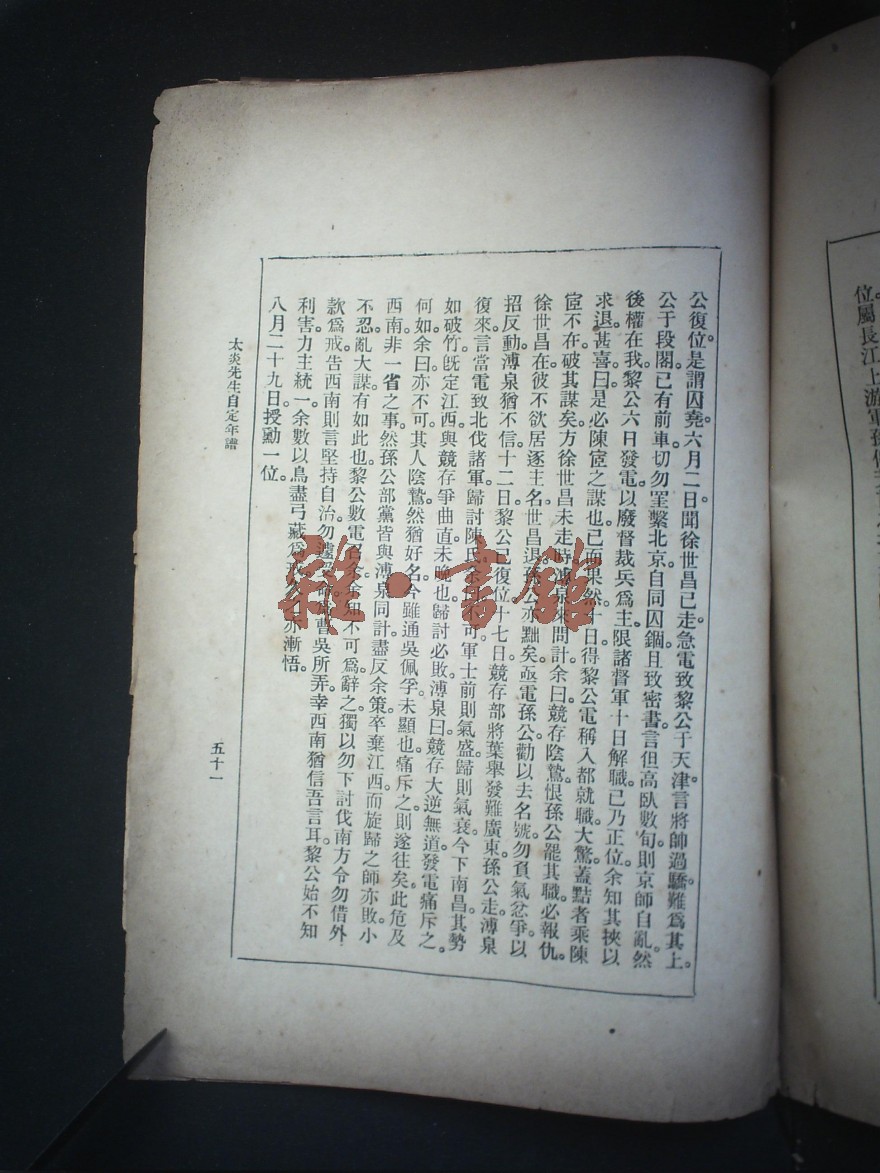 公復位。是謂囚堯。六月二日聞徐世昌已走急電致黎公于天津言將帥過驕難爲其上。
公于段閣已有前車切勿罣繫北京自同囚錮且致密書言但高臥數旬則京師自亂然
後權在我黎公六日發電以廢督裁兵爲主限諸督軍十日解職己乃正位余知其挾以
求退甚喜曰是必陳宧之謀也已而果然十日得黎公電稱入都就職大驚蓋黠者乘陳
宧不在破其謀矣。方徐世昌未走時溥泉來問計余曰競存陰鷙恨孫公罷其職必報仇。
徐世昌在彼不欲居逐主名世昌退孫公亦黜矣。亟電孫公勸以去名號。勿負氣忿爭以
招反動。溥泉猶不信十二日黎公已復位十七日競存部將葉舉發難廣東孫公走溥泉
復來言當電致北伐諸軍歸討陳氏余曰不可軍士前則氣盛歸則氣衰。今下南昌其勢
如破竹。旣定江西與競存爭曲直未晚也歸討必敗溥泉曰競存大逆無道發電痛斥之。
何如余曰亦不可。其人陰鷙然猶好名今雖通吳佩孚未顯也痛斥之則遂往矣此危及
西南非一省之事。然孫公部黨皆與溥泉同計盡反余策卒棄江西。而旋歸之師亦敗。小
不忍亂大謀有如此也黎公數電召余余知不可爲辭之獨以勿下討伐南方令勿借外
款爲戒。告西南則言堅持自治勿遽 曹吳所弄。幸西南猶信吾言耳。黎公始不知
利害力主統一。余數以鳥盡弓藏爲 亦漸悟。
八月二十九日授勳一位。
太炎先生自定年譜
五十一
位屬長江上游軍孫傳